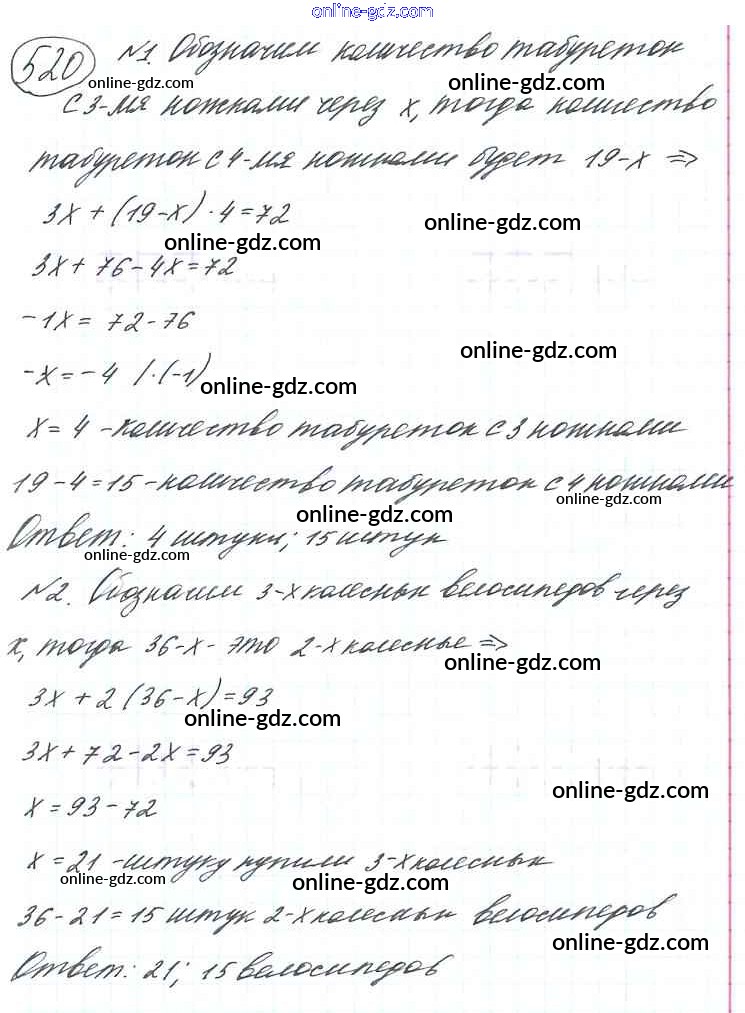 online-gdz.com
520 №1 Обозначим количество табуреток
online-gdz.com online-gdz.com
с 3-мя ножками через x, тогда количество
табуреток с 4-мя ножками будет 19-x ⇒
3x + (19-x) · 4 = 72
online-gdz.com online-gdz.com
3x + 76 - 4x = 72
-1x = 72 - 76
online-gdz.com
-x = -4 /·(-1)
online-gdz.com
x = 4 - количество табуреток с 3 ножками
19 - 4 = 15 - количество табуреток с 4 ножками
online-gdz.com online-gdz.com
Ответ: 4 штуки; 15 штук
online-gdz.com
№2. Обозначим 3-х колесных велосипедов через
x, тогда 36-x - это 2-х колесные ⇒
online-gdz.com
3x + 2 (36-x) = 93
online-gdz.com
3x + 72 - 2x = 93
online-gdz.com
x = 93 - 72
x = 21 - штуку купили 3-х колесных
online-gdz.com online-gdz.com
36 - 21 = 15 штук 2-х колесных велосипедов
online-gdz.com
Ответ: 21; 15 велосипедов